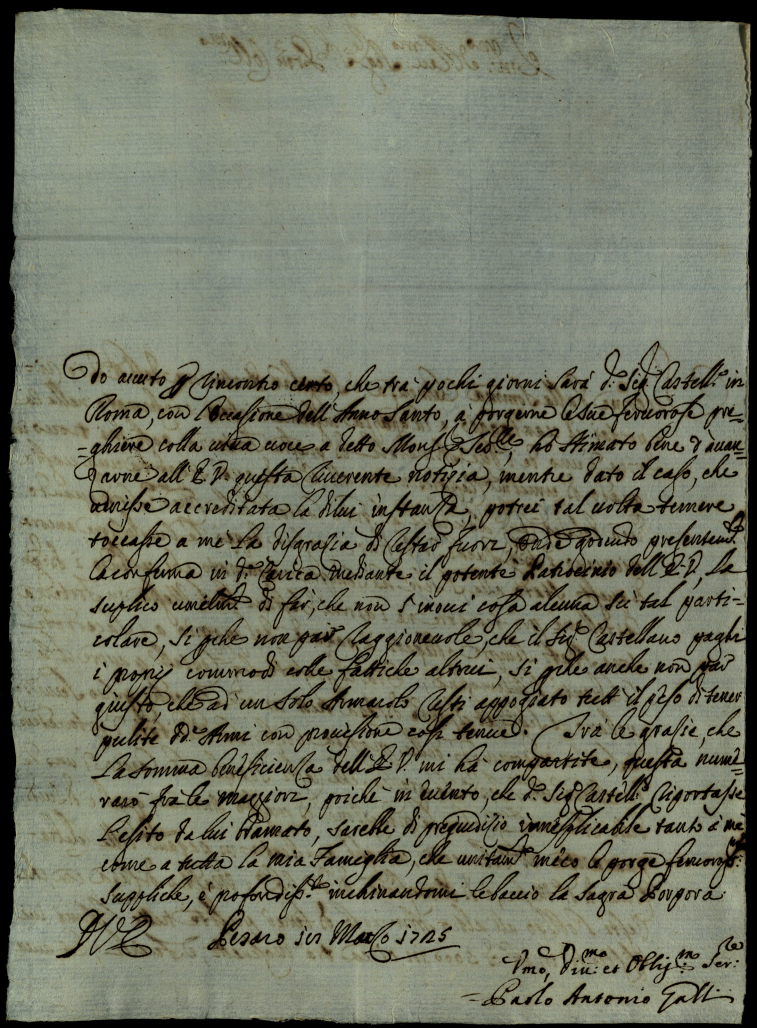 do avuto p l'incontro certo, che trà pochi giorni sarà d.º Sig.r Castell.º in
Roma, con l'occasione dell'Anno Santo, a porgerne le sue fervorose pre=
=ghiere colla viva voce a detto Mons.re ho stimato bene d'avan=
zarne all'E.V. questa riverente notizia, mentre dato il caso, che
venisse accreditata la di lui instanza, potrei tal volta temere
toccasse a mè la disgrazia di restar fuori, onde godendo presentem.te
la conferma in d.ª carica mediante il potente Patrocinio dell'E.V., la
suplico umilm.te di far, che non s'inovi cosa alcuna sù tal parti=
colare, sì pche non par raggionevole, che il Sig.r Castellano paghi
i proprij commodi colle fattiche altrui, sì pche anche non par
giusto, che ad un solo Armarolo resti appoggiato tutt'il peso di tener
pulite dd.e Armi con provisione così tenue. Trà le grazie, che
la somma beneficienza dell'E.V. mi hà compartite, questa nume=
rarò frà le maggiori, poiche in evento, che d.º Sig.r Castell.º riportasse
l'esito da lui bramato, sarebbe di pregiudizio inesplicabile tanto à me
come a tutta la mia Famiglia, che unitam.te meco le porge fervoros.me
suppliche, e profondiss.te inchinandomi le baccio la Sagra Porpora
Pesaro Marzo 1725
Vmo, Divmo et Obligmo Serre
Paolo Antonio Galli